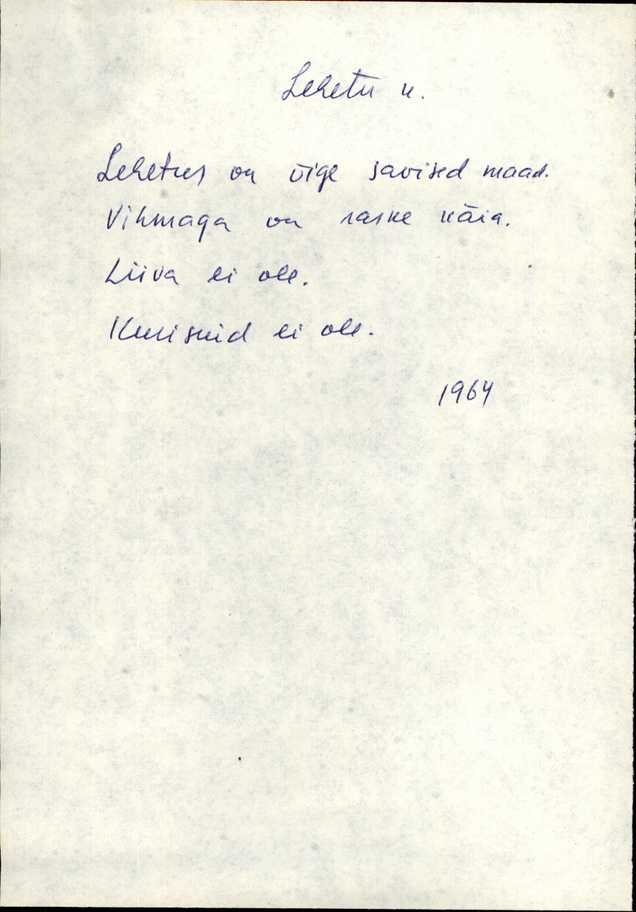 Lehetu k.
Lehetus on õige savised maad.
Vihmaga on raske käia.
Liiva ei ole.
Kurisuid ei ole.
1964